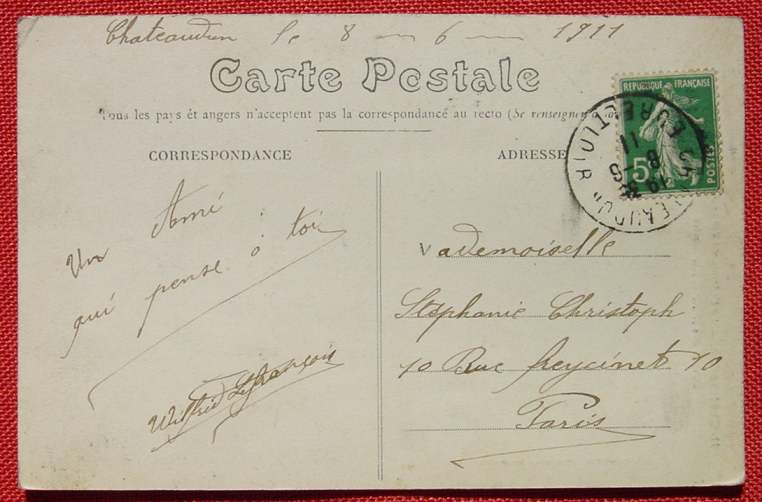 Chateaudun le 8 6 1911
Carte Postale
Tous les pays ét angers n'acceptent pas la correspondance au recto (Se renseigner à
CORRESPONDANCE
ADRESSE
REPUBLIQUE FRANÇAISE
5
POSTES
EURE ET LOIR
Un Ami
qui pense à toi
Wilfrid Lefrançois
Mademoiselle
Stéphanie Christoph
10 Rue freycinet 10
Paris